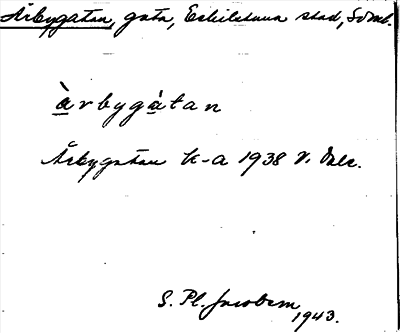 Årbygatan, gata, Eskilstuna stad, Södml.
àrbygàtan
Årbygatan k-a 1938 V. Dalc.
S. Pl. Jacobsen
1943.